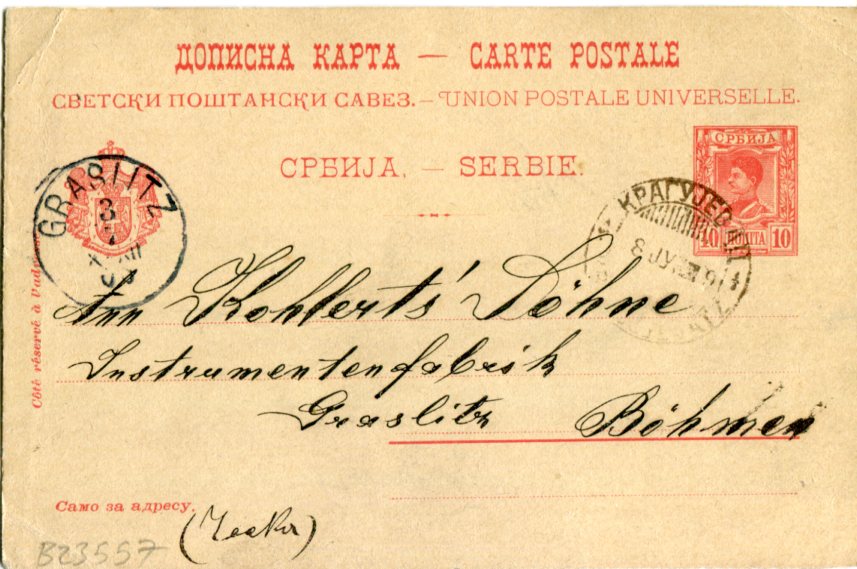 ДОПИСНА КАРТА — CARTE POSTALE
СВЕТСКИ ПОШТАНСКИ САВЕЗ. — UNION POSTALE UNIVERSELLE.
СРБИЈА. — SERBIE.
СРБИЈА
10 ПОШТА 10
GRASLITZ
3
КРАГУЈЕВАЦ
Côté réservé à l'adresse
Ann Kohlerts' Söhne
Instrumentenfabrik
Graslitz Böhmen
Само за адресу.
B23557